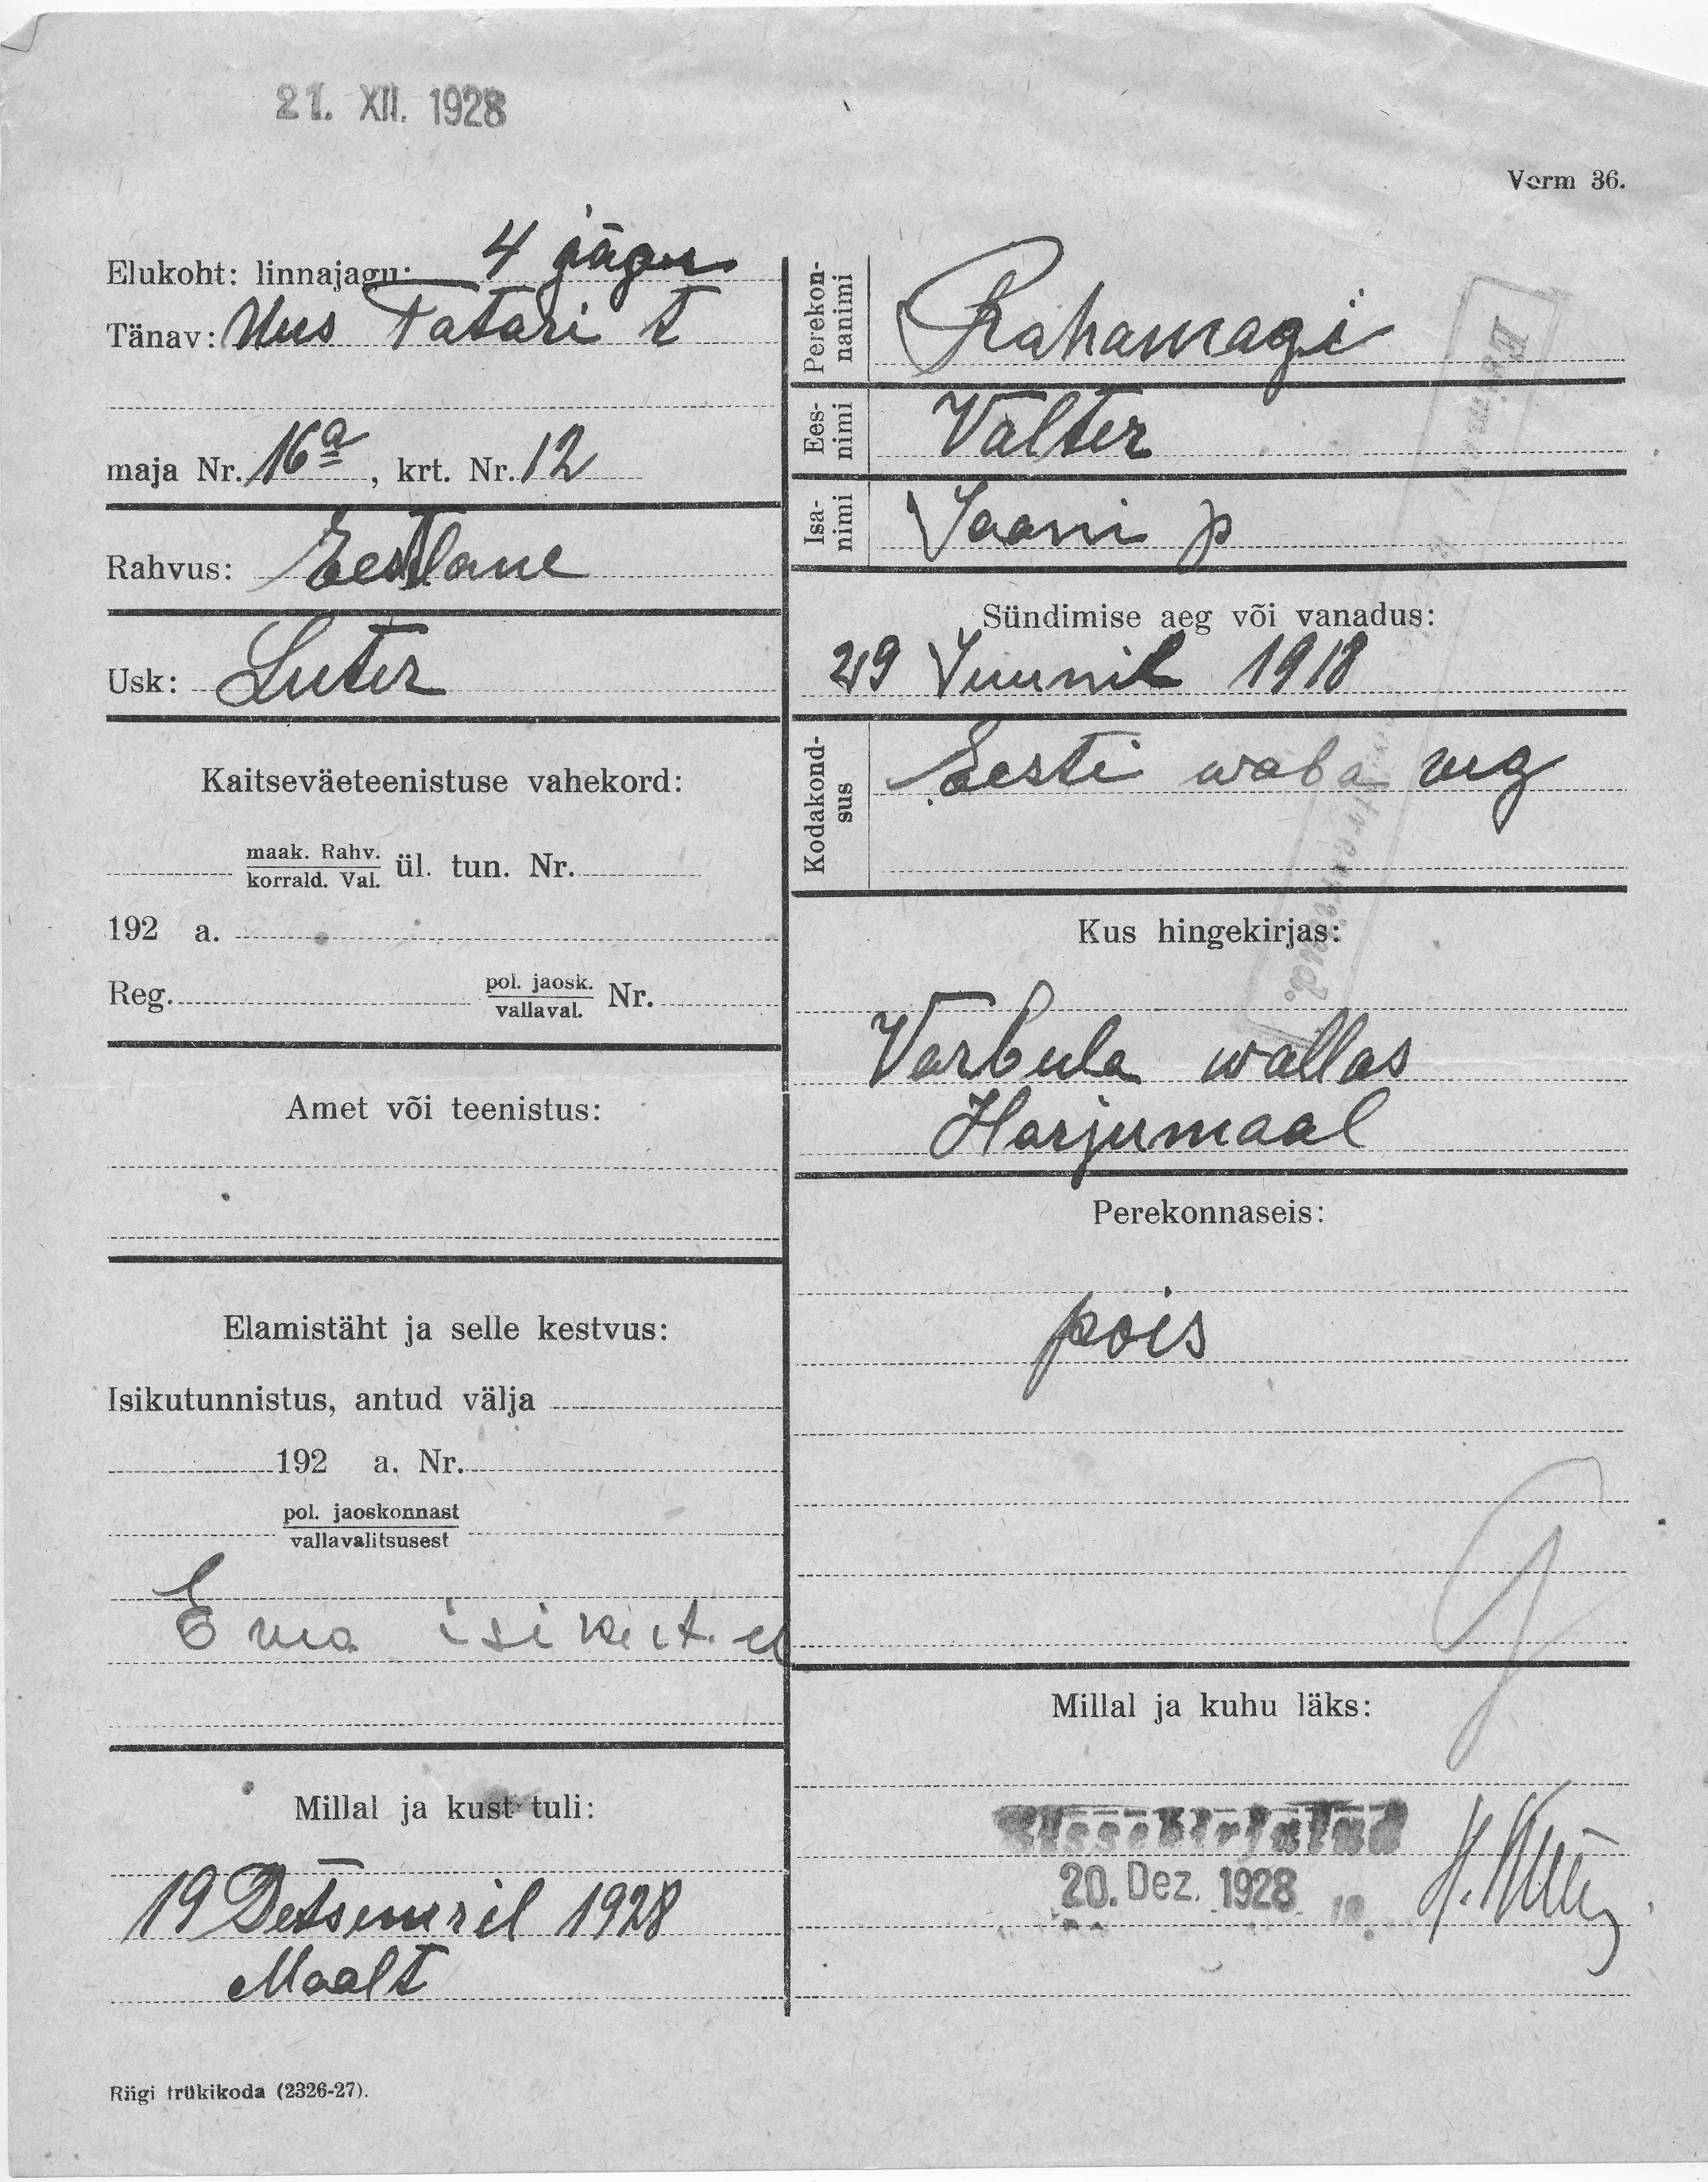 21. XII. 1928
Vorm 36.
Elukoht: linnajagu: 4 jägu
Tänav: Uus Tatari t
maja Nr. 16a, krt. Nr. 12
Rahvus: Eestlane
Usk: Luter
Kaitseväeteenistuse vahekord:
maak. Rahv.
korrald. Val. ül. tun. Nr.
192 a.
Reg. pol. jaosk. Nr.
vallaval.
Amet või teenistus:
Elamistäht ja selle kestvus:
Isikutunnistus, antud välja
192 a. Nr.
pol. jaoskonnast
vallavalitsusest
Ema isikut.
Millal ja kust tuli:
19 Detsemril 1928
Maalt
Perekon-
nanimi
Rahamagi
Ees-
nimi
Valter
Isa-
nimi
Jaani p
Sündimise aeg või vanadus:
29 Juunil 1918
Kodakond-
sus
Eesti waba
Kus hingekirjas:
Varbula wallas
Harjumaal
Perekonnaseis:
pois
Millal ja kuhu läks:
Sissekirjutud
20. Dez. 1928
Riigi trükikoda (2326-27).